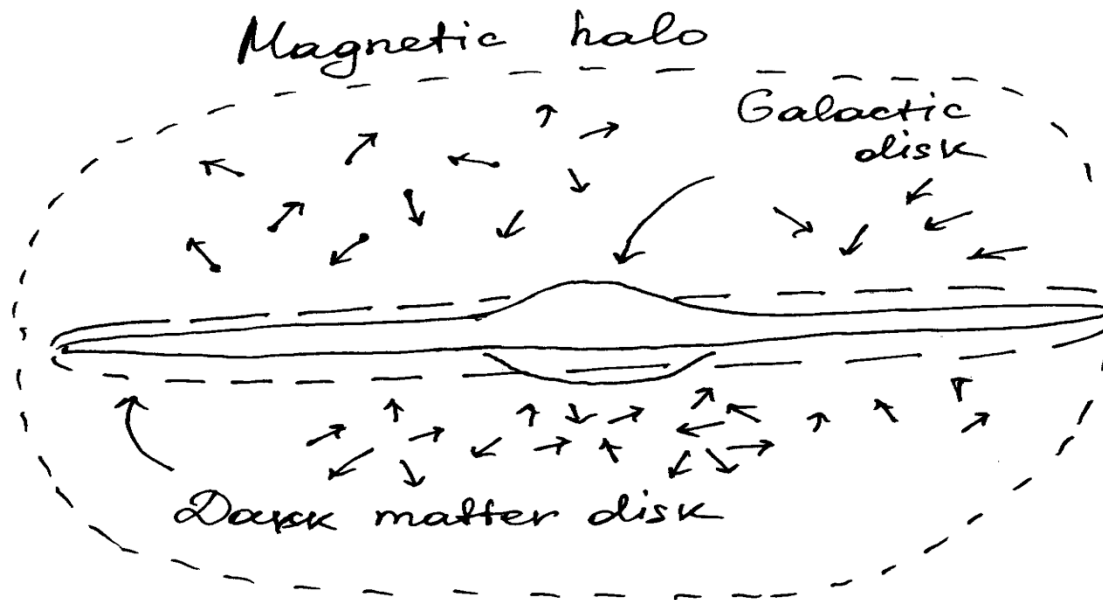 Magnetic halo
Galactic
disk
Dark matter disk